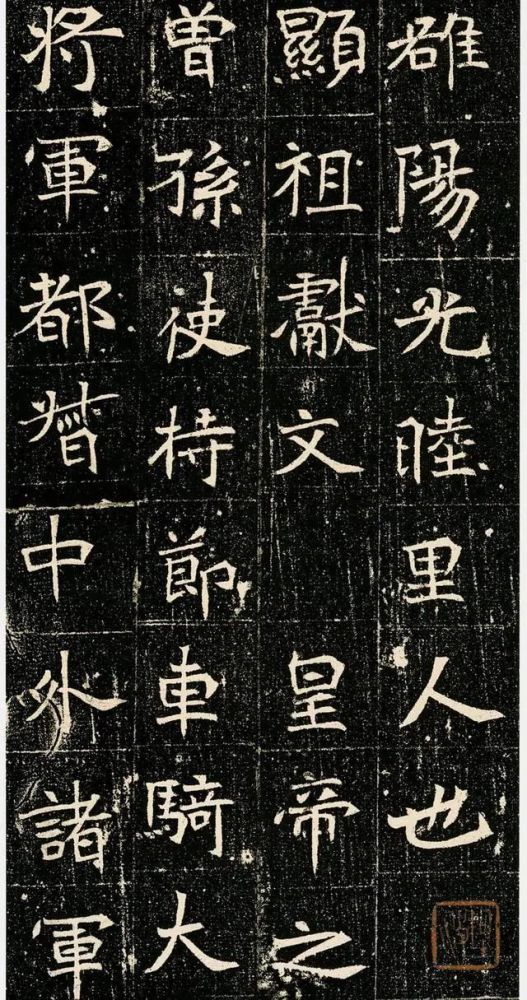 雒陽光睦里人也
顯祖獻文 皇帝之
曾孫使持節車騎大
将軍都督中外諸軍